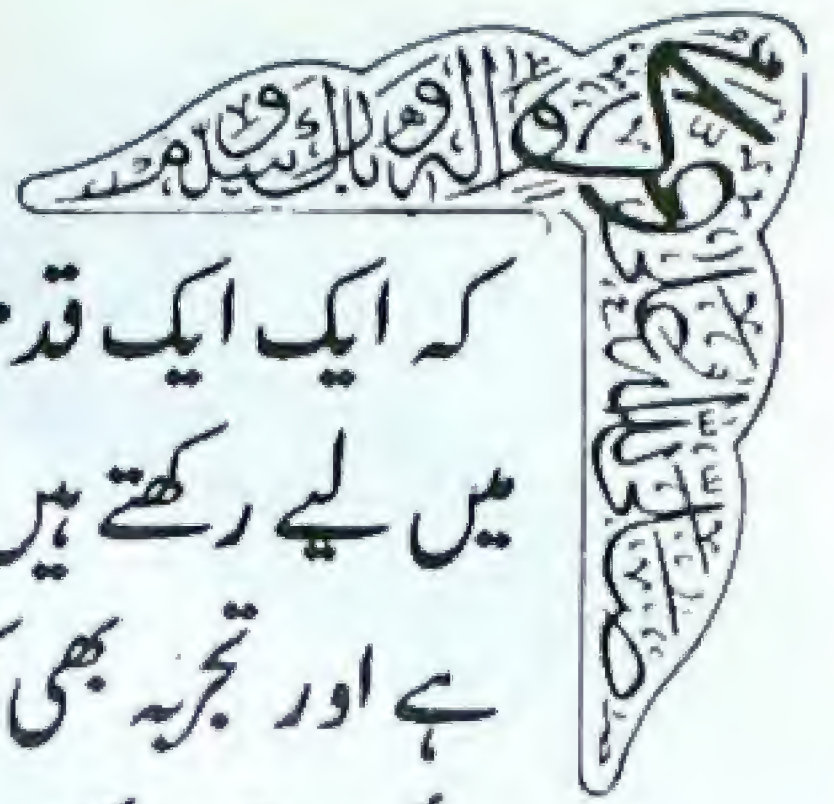 صلی اللہ علیہ وآلہ وبارک وسلم
کہ ایک ایک
میں لیے رکھتے ہیں
ہے اور تجربہ بھی